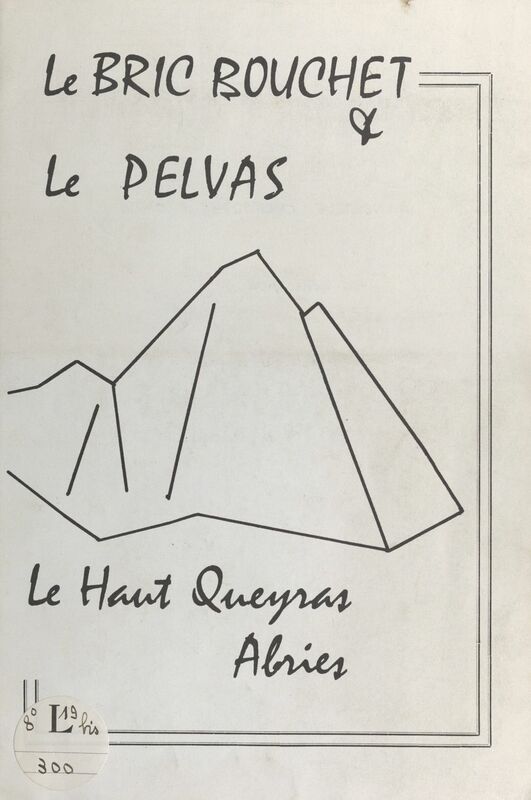 Le BRIC BOUCHET
&
Le PELVAS
Le Haut Queyras
Abries
8° L19 bis
300